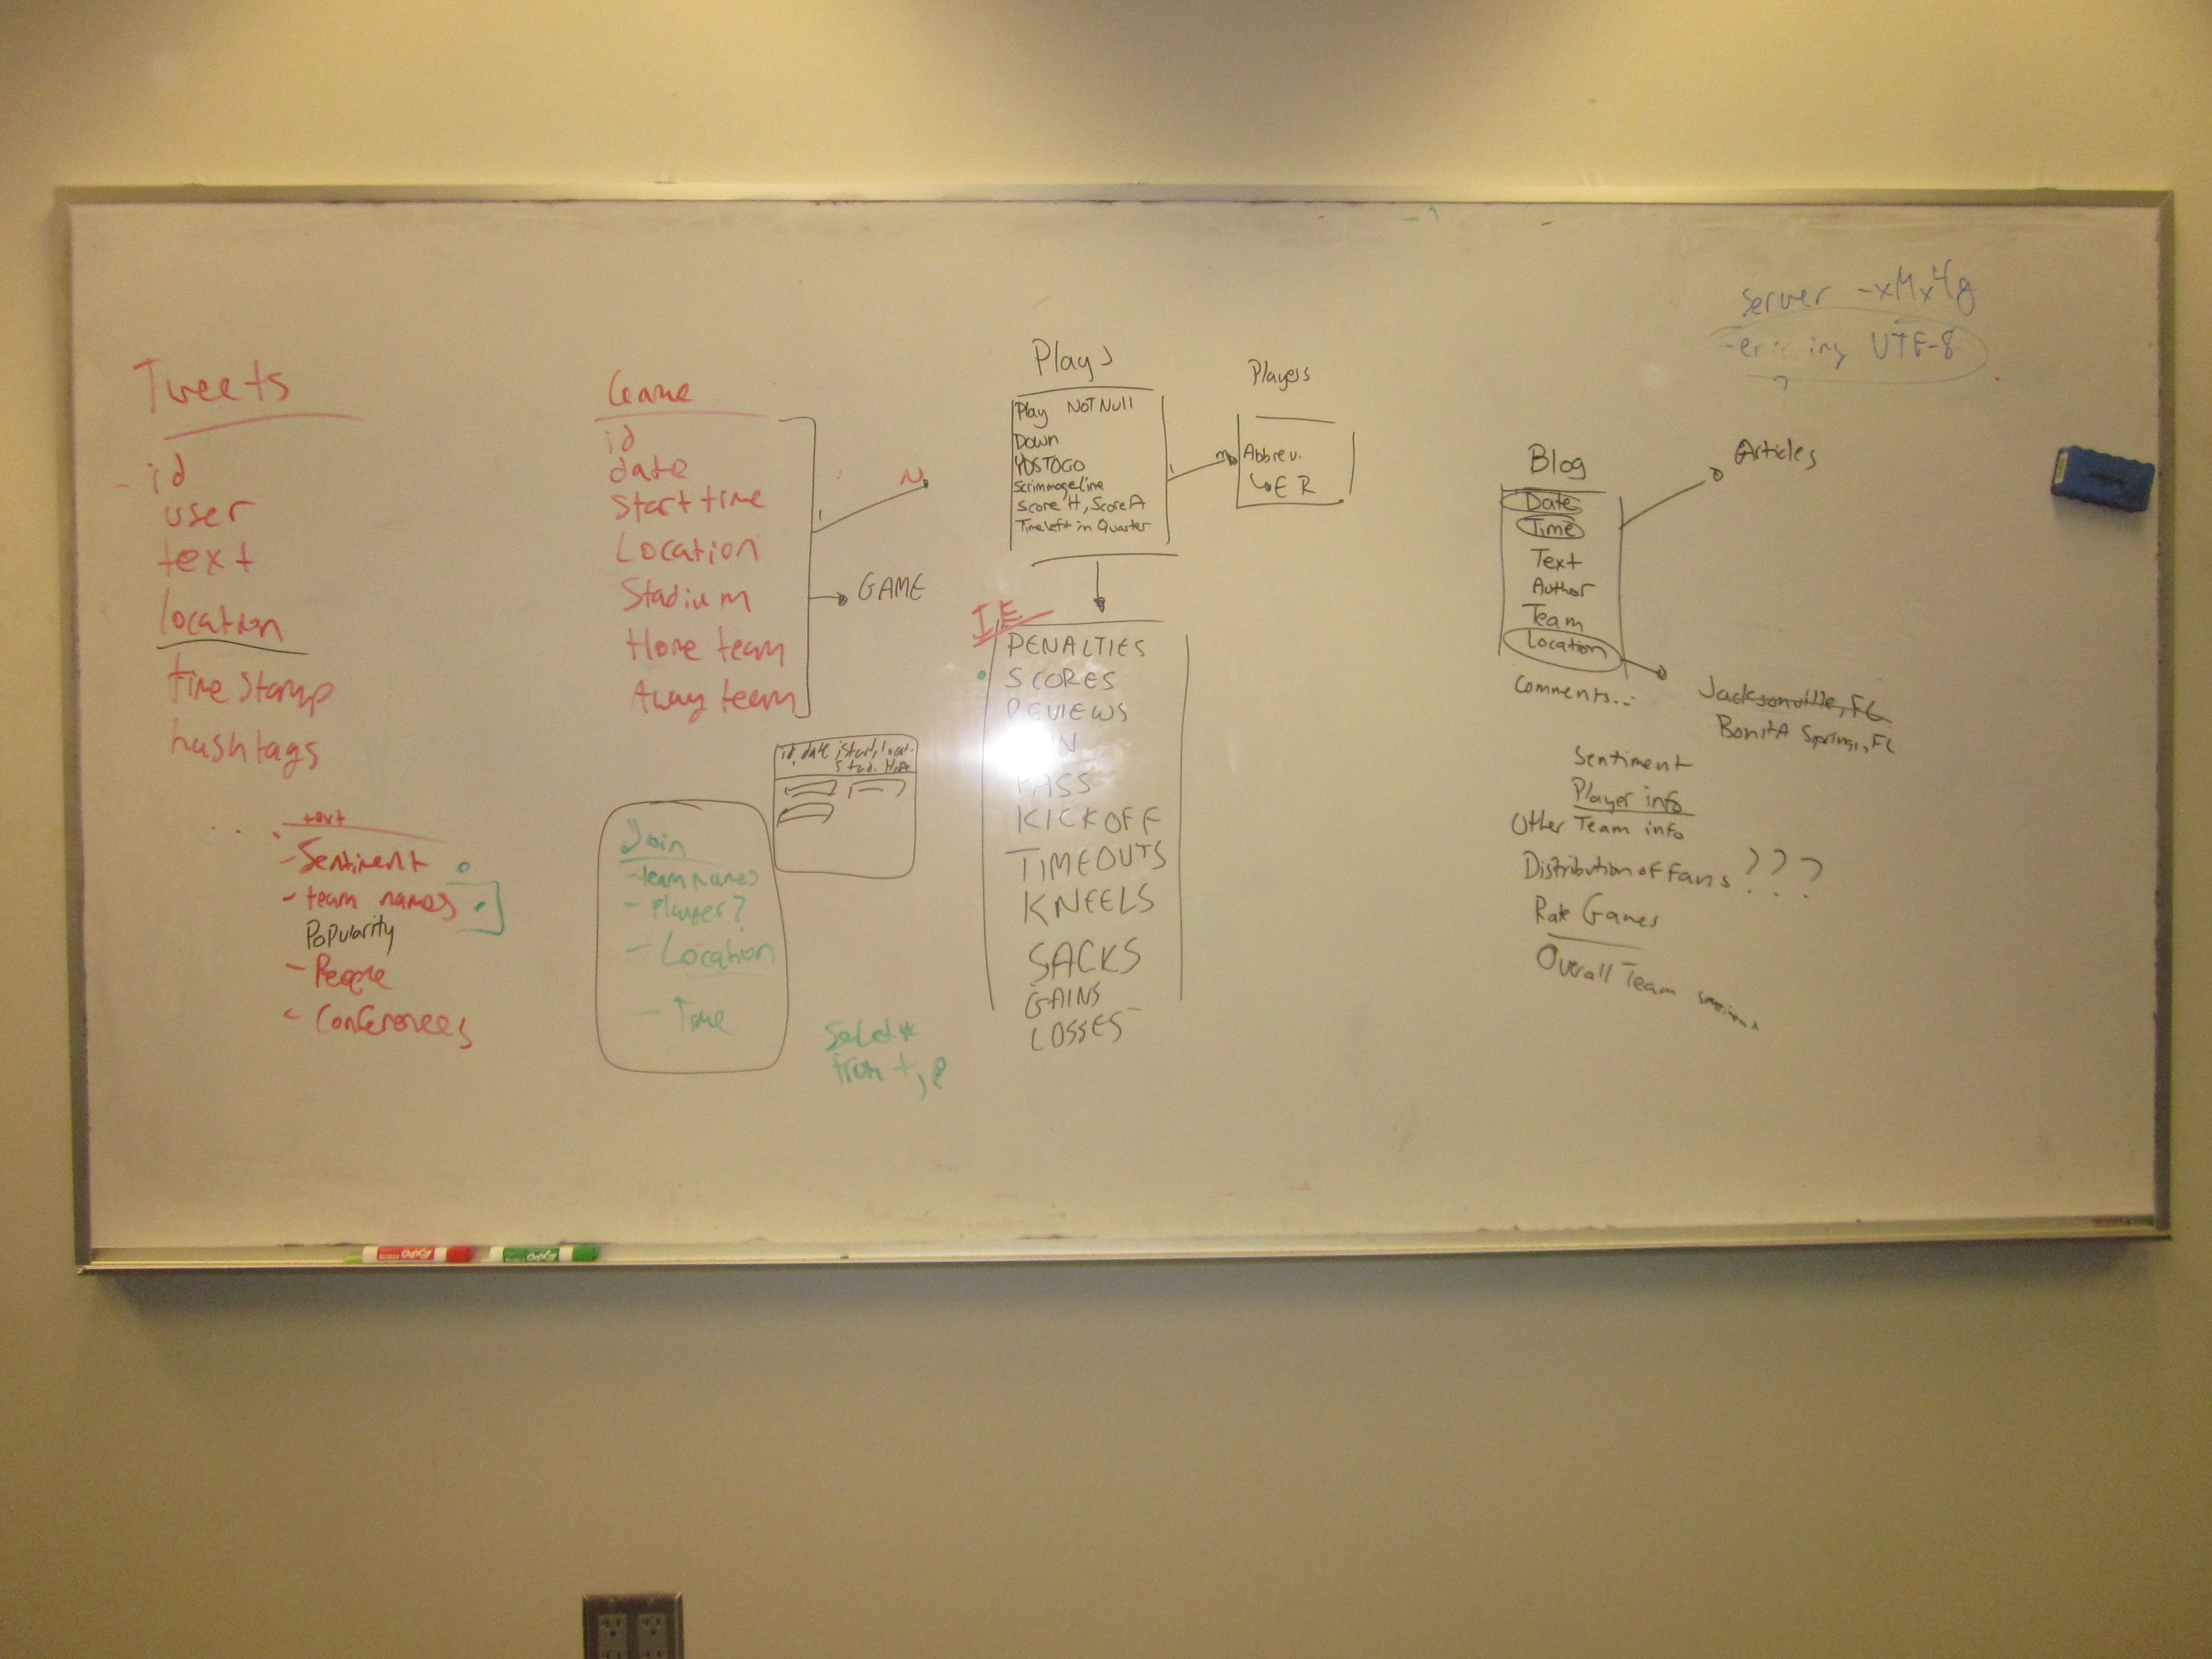 Tweets
id
user
text
location
time stamp
hashtags
text
- Sentiment
- team names
Popularity
- People
- Conferences
Game
id
date
Start time
Location
Stadium
Home team
Away team
1
N
GAME
id, date, start, locat.
Stad. H, A
Join
- team names
- Player?
- Location
- Time
Select *
from t, g
Plays
Play NOT Null
Down
YDSTOGO
Scrimmage line
Score H, Score A
Time left in Quarter
1
m
Players
Abbrev.
ER
I.E.
PENALTIES
SCORES
REVIEWS
PASS
KICKOFF
TIMEOUTS
KNEELS
SACKS
GAINS
LOSSES
Server -xMx4g
UTF-8
Blog
Date
Time
Text
Author
Team
Location
Comments...
Articles
Jacksonville, FL
Bonita Springs, FL
Sentiment
Player info
Other Team info
Distribution of Fans ???
Rate Games
Overall Team sentiment
EXPO
EXPO